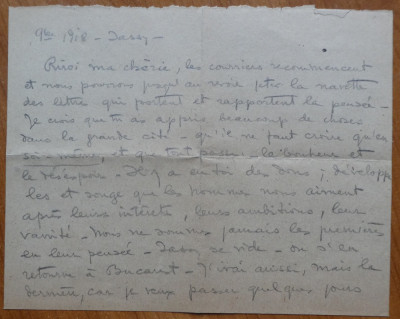 1918 - Jassy -
ma chérie, les courriers recommencent
et nous pourrons jusqu'au revoir la navette
des lettres qui portent et rapportent la pensée -
Je crois que tu as appris beaucoup de choses
dans la grande cité - qu'il ne faut croire qu'en
soi même, et que tout passe - le bonheur et
le désespoir - Il y a en toi des dons ; développe
les et songe que les hommes nous aiment
après leurs intérêts, leurs ambitions, leur
vanité - Nous ne sommes jamais les premières
en leur pensée - Jassy se vide - on s'en
retourne à Bucarest - J'irai aussi, mais la
dernière, car je veux passer quelques jours